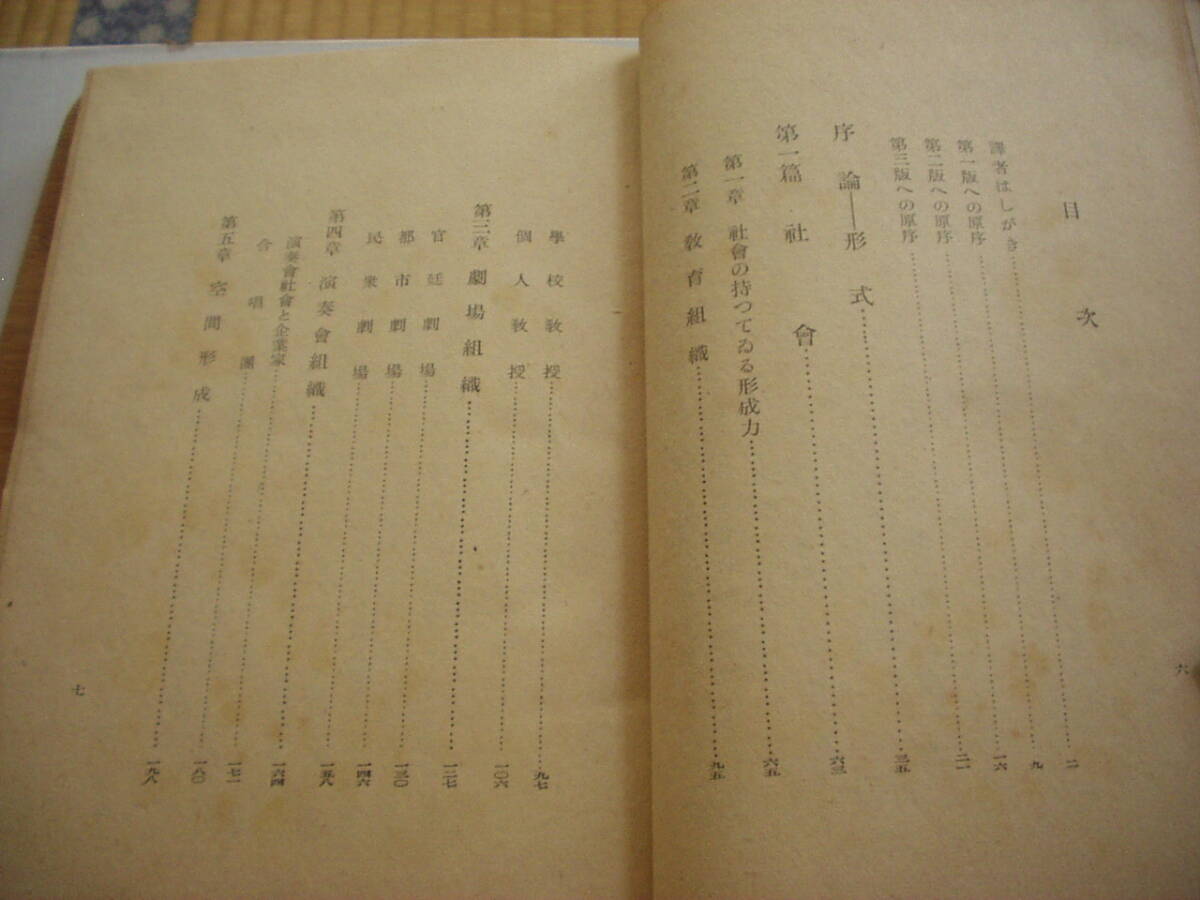 目次
譯者はしがき……二
第一版への原序……九
第二版への原序……一六
第三版への原序……二一
序論——形式……三五
第一篇 社會……六三
第一章 社會の持つてゐる形成力……六五
第二章 教育組織……九五
六
學校教授……九七
個人教授……一〇六
第三章 劇場組織……一二七
官廷劇場……一三〇
都市劇場……一四六
民衆劇場……一五八
第四章 演奏會組織……一六四
演奏會社會と企業家……一七一
合唱團……一八〇
第五章 空間形成……一九八
七